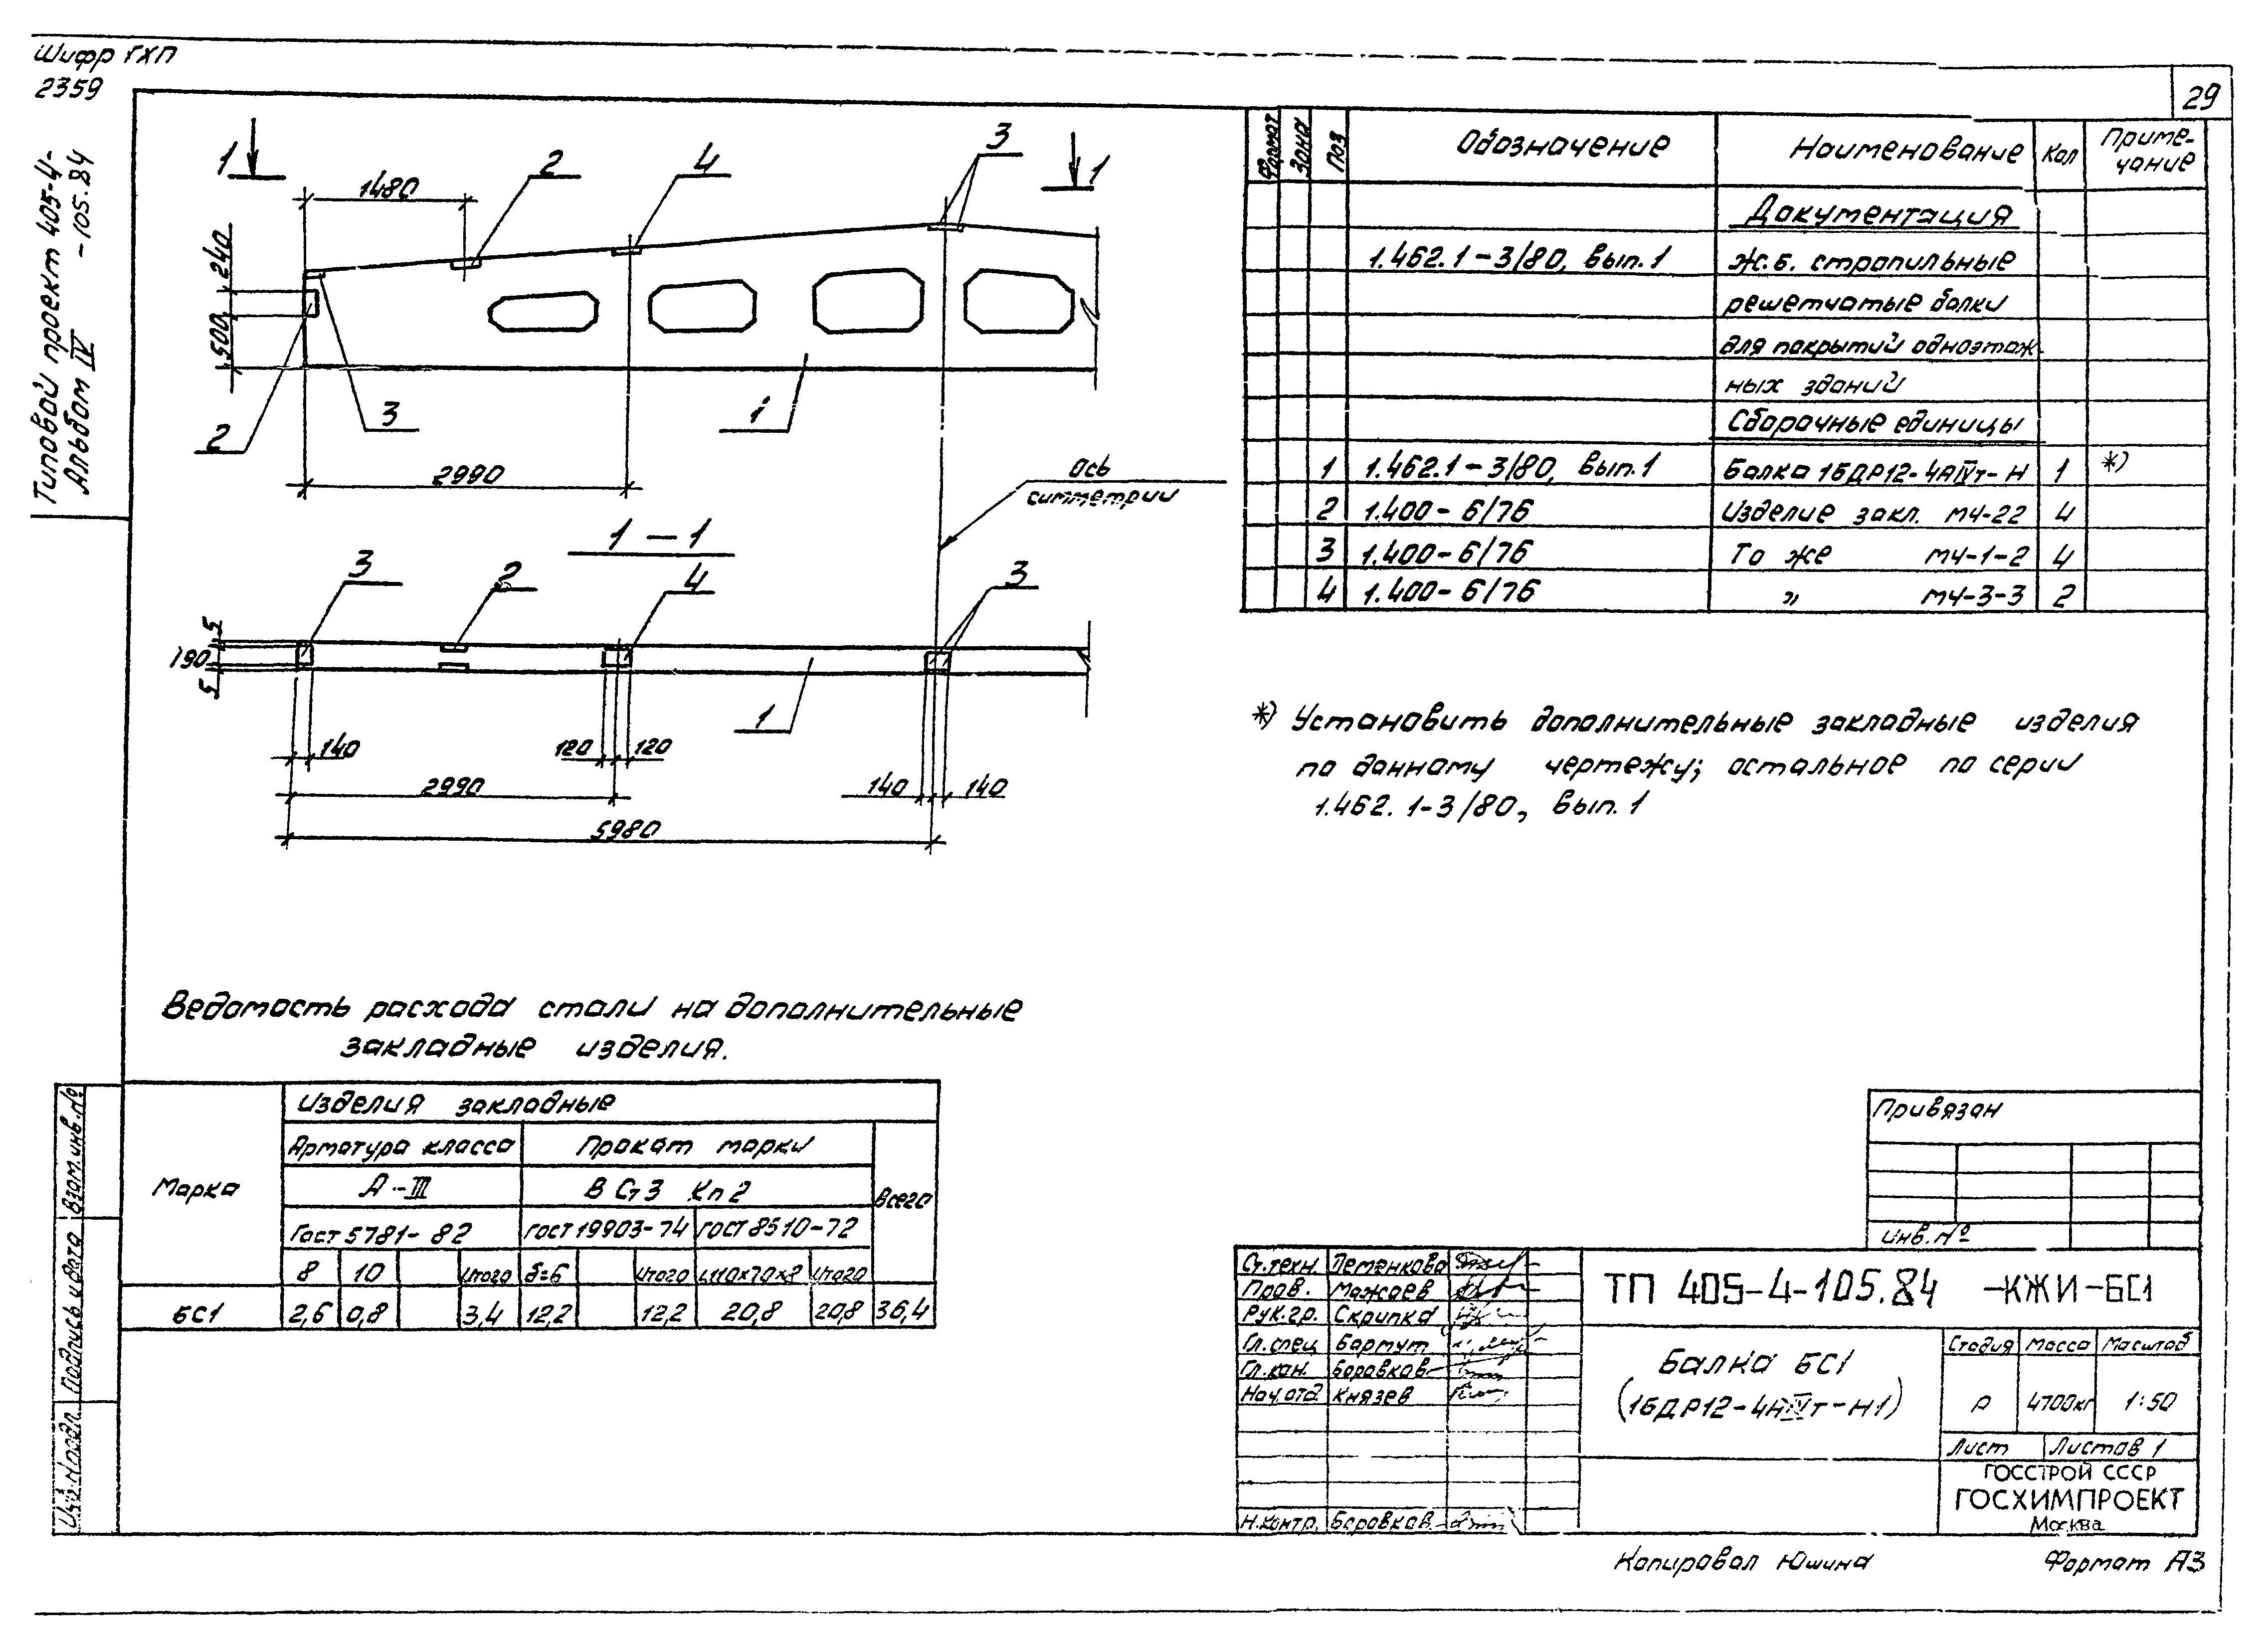 Шифр ГХП
2359
29
Типовой проект 405-4-
-105.84
Альбом IV
1
1
2
4
3
1480
240
500
2
3
1
2990
ось
симметрии
1 – 1
3
2
4
3
5
190
5
1
140
120
120
2990
140
140
5980
Формат
Зона
Поз
Обозначение
Наименование
Кол
Приме-
чание
Документация
1.462.1-3/80, вып.1
ж.б. стропильные
решетчатые балки
для покрытий одноэтаж-
ных зданий
Сборочные единицы
1 1.462.1-3/80, вып.1 Балка 1БДР12-4АIVт-Н 1 *)
2 1.400-6/76 Изделие закл. МЧ-22 4
3 1.400-6/76 То же МЧ-1-2 4
4 1.400-6/76 " МЧ-3-3 2
*) Установить дополнительные закладные изделия
по данному чертежу; остальное по серии
1.462.1-3/80, вып.1
Ведомость расхода стали на дополнительные
закладные изделия.
Марка
Изделия закладные
Арматура класса
Прокат марки
Всего
А-III
ВСт3 Кп2
Гост 5781-82
гост 19903-74
гост 8510-72
8 10 Итого δ=6 Итого L110x70x8 Итого
БС1 2,6 0,8 3,4 12,2 12,2 20,8 20,8 36,4
Взам.инв.№
Подпись и дата
Инв.№подл.
Привязан
Инв.№
Ст.техн. Петенкова
Пров. Мажаев
Рук.гр. Скрипка
Гл.спец Бартут
Гл.кон. Боровков
Нач.отд Князев
Н.контр. Боровков
ТП 405-4-105.84 -КЖИ-БС1
Балка БС1
(1БДР12-4АIVт-Н1)
Стадия Масса Масштаб
Р 4700кг 1:50
Лист Листов 1
ГОССТРОЙ СССР
ГОСХИМПРОЕКТ
Москва
Копировал Юшина
Формат А3